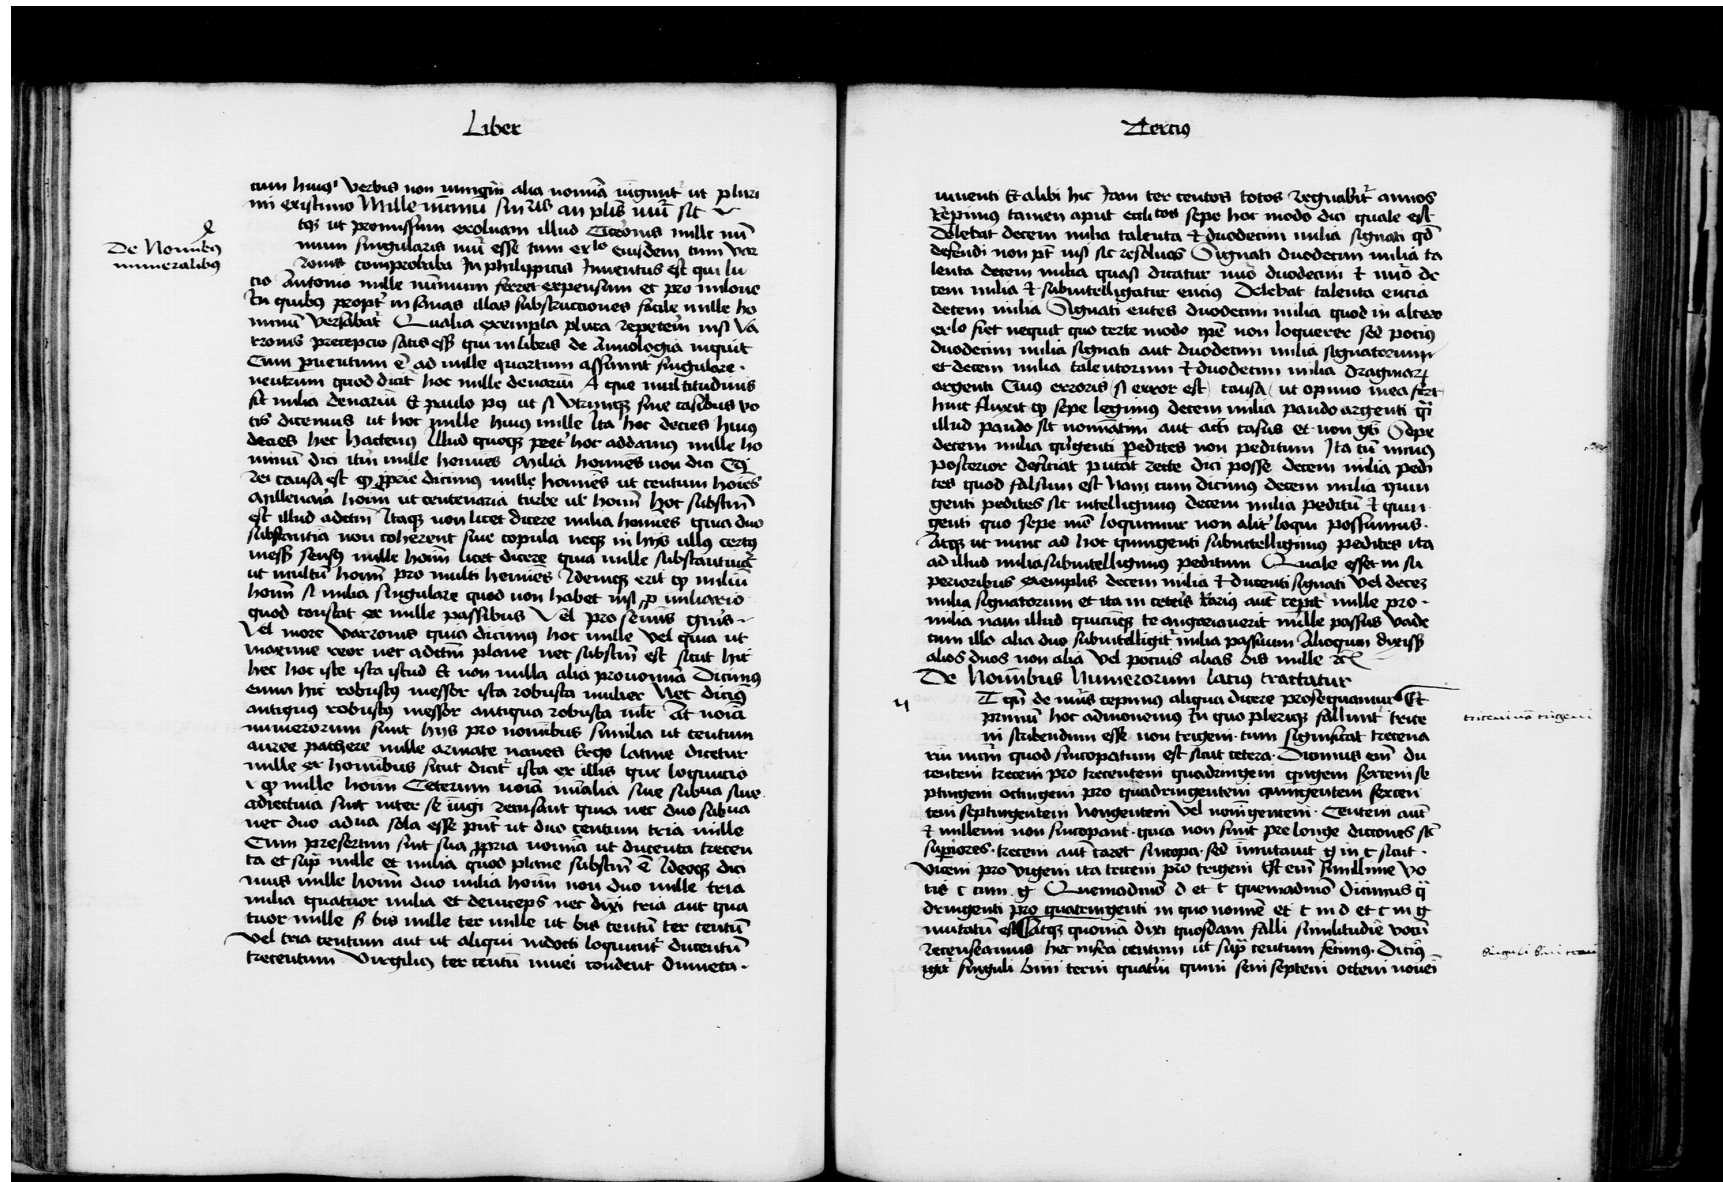 Liber
cum huius verbis non nunqm̄ alia nomīa iūgunt᷑ ut pluri
mi existimo Mille nūmū singlis an plis nūi sit
De Nomībus
numeralibus
tqꝫ ut promissum exoluam illud Ciceronis mille nū
mum singularis nūi esse tum exlo eiusdem tum var
ronis comprobabo In philippicis Inventus est qui lu
cio Antonio mille nūmum ferret expensum et pro milone
In quibus propt᷑ insanas illas substructiones facile mille ho
minū versabat᷑ Qualia exempla plura repetem̄ nisi va
rronis precepcio satis ess̄ qui in libris de Annologia inquit
Cum ꝑuentum ē ad mille quartum assumit singulare
neutrum quod dicit hoc mille denariū A que multitudinis
fit milia denariū Et paulo pꝰ ut si utrinqꝫ sine casibus vo
cis dicemus ut hoc mille huius mille Ita hoc decies huius
decies hec hactenus Illud quoqꝫ pret᷑ hoc addamus mille ho
minū dici itm̄ mille homīes Milia homīes non dici Cuius
rei causa est qꝫ ꝓprie dicimus mille homīes ut centum hoīes
Millenaria hoīm ut centenaria turbe ut hoīm hoc substm̄
est illud adctm̄ Itaqꝫ non licet dicere milia homīes quia duo
substantia non coherent sine copula neqꝫ in hijs ullus certus
iness̄ sensus mille hoīm licet dicere quia mille substantivat᷑
ut multū hoīm pro multi homīes Idemqꝫ erit qꝫ miliū
hoīm si milia singulare quod non habet nisi ꝓ miliario
quod constat ex mille passibus Vel pro seminis gn̄is
Vel more varronis quia dicimus hoc mille vel quia ut
maxime reor nec adctm̄ plane nec substm̄ est sicut hic
hec hoc iste ista istud Et non nulla alia pronomīa Dicimus
enim hic robustus messor ista robusta mulier Nec dicimus
antiquus robustus messor antiqua robusta mlr̄ At noīa
numerorum sunt hijs pro nomībus similia ut centum
auree pathere mille armate naves Ergo latine dicetur
mille ex homībus sicut dicit᷑ ista ex illis que loquucio
r qꝫ mille hoīm Ceterum noīa nūalia sive subūa sive
adiectiva sint inter se iūgi recusant quia nec duo subūa
nec duo adūa sola esse pn̄t ut duo centum tria mille
Cum presertim sint sua ꝓpria nomīa ut ducenta trecen
ta et supr̄ mille et milia quod plane substm̄ ē Ideoqꝫ dici
mus mille hoīm duo milia hoīm non duo mille tria
milia quatuor milia et deinceps nec dixi tria aut qua
tuor mille s̄ bis mille ter mille ut bis centū ter centū
vel tria centum aut ut aliqui indocti loquunt᷑ ducentū
trecentum Virgilius ter centū nivei tondent dumeta
Tercius
iuventi Et alibi hic Iam ter centos totos regnabit᷑ annos
Repimus tamen aput ecclitos sepe hoc modo dici quale est
Debebat decem milia talenta et duodecim milia signati qd̄
defendi non pt̄ nisi sic resoluas Signati duodecim milia ta
lenta decem milia quasi dicatur nūo duodecim et nūo de
cem milia et subintelligatur encius Debebat talenta encia
decem milia Signati entes duodecim milia quod in altero
exlo fieri nequit quo certe modo ip̄e non loquerer sed pocius
duodecim milia signati aut duodecim milia signatorum
et decem milia talentorum et duodecim milia dragmarꝝ
argenti Cuius erroris (si error est) causa (ut opinio mea fert
hinc fluxit qꝫ sepe legimus decem milia pondo argenti qn̄
illud pondo sit nomnatim aut acti casus et non gti Sepe
decem milia qn̄genti pedites non peditum Ita cū unus
posterior deficiat putat recte dici posse decem milia pedi
tes quod falsum est Nam cum dicimus decem milia quin
genti pedites sic intelligimus decem milia peditū et quin
genti quo sepe nūc loquimur non alit᷑ loqui possumus
Atqꝫ ut nunc ad hoc quingenti subintelligimus pedites ita
ad illud milia subintelligimus peditum Quale esset in su
perioribus exemplis decem milia et ducenti signati vel decez
milia signatorum et ita in ceteris Rarius aut̄ repit᷑ mille pro
milia nam illud quicūqꝫ te angariaverit mille passus vade
cum illo alia duo subintelligit᷑ milia passuum Alioquin dixiss̄
alios duos non alia vel pocius alias bis mille rcꝉ
De Nomībus Numerorum lacius tractatur
T qn̄ de nūis cepimus aliqua dicere prosequamur Et
primū hoc admonemus In quo plerique fallunt᷑ trice
triceni nō trigeni
ni scribendum esse non trigeni tum significat tricena
riū nūm quod sincopatum est sicut cetera Dicimus em̄ du
centeni treceni pro trecenteni quadringeni qn̄geni sexceni se
ptingeni octingeni pro quadringenteni quingenteni sexcen
teni septingenteni Nongenteni vel nonīgenteni Centeni aut̄
et milleni non sincopant᷑ quia non sunt pre longe dictiones st᷑
supiores treceni aut̄ caret sincopa sed īmutavit g in c sicut
viceni pro vigeni ita triceni pro trigeni Est em̄ simillime vo
cis c cum g Quemadmō d et t quemadmō dicimus qͣ
dringenti pro quatringenti in quo nomīe et t in d et c in g
mutatū est Atqꝫ quoniā dixi quosdam falli similitudīe vocū
recenseamus hec infra centum ut supr̄ centum fecimus Dicimus
singuli bini terni
igit᷑ singuli bini terni quat᷑ni quini seni septeni octeni noveī